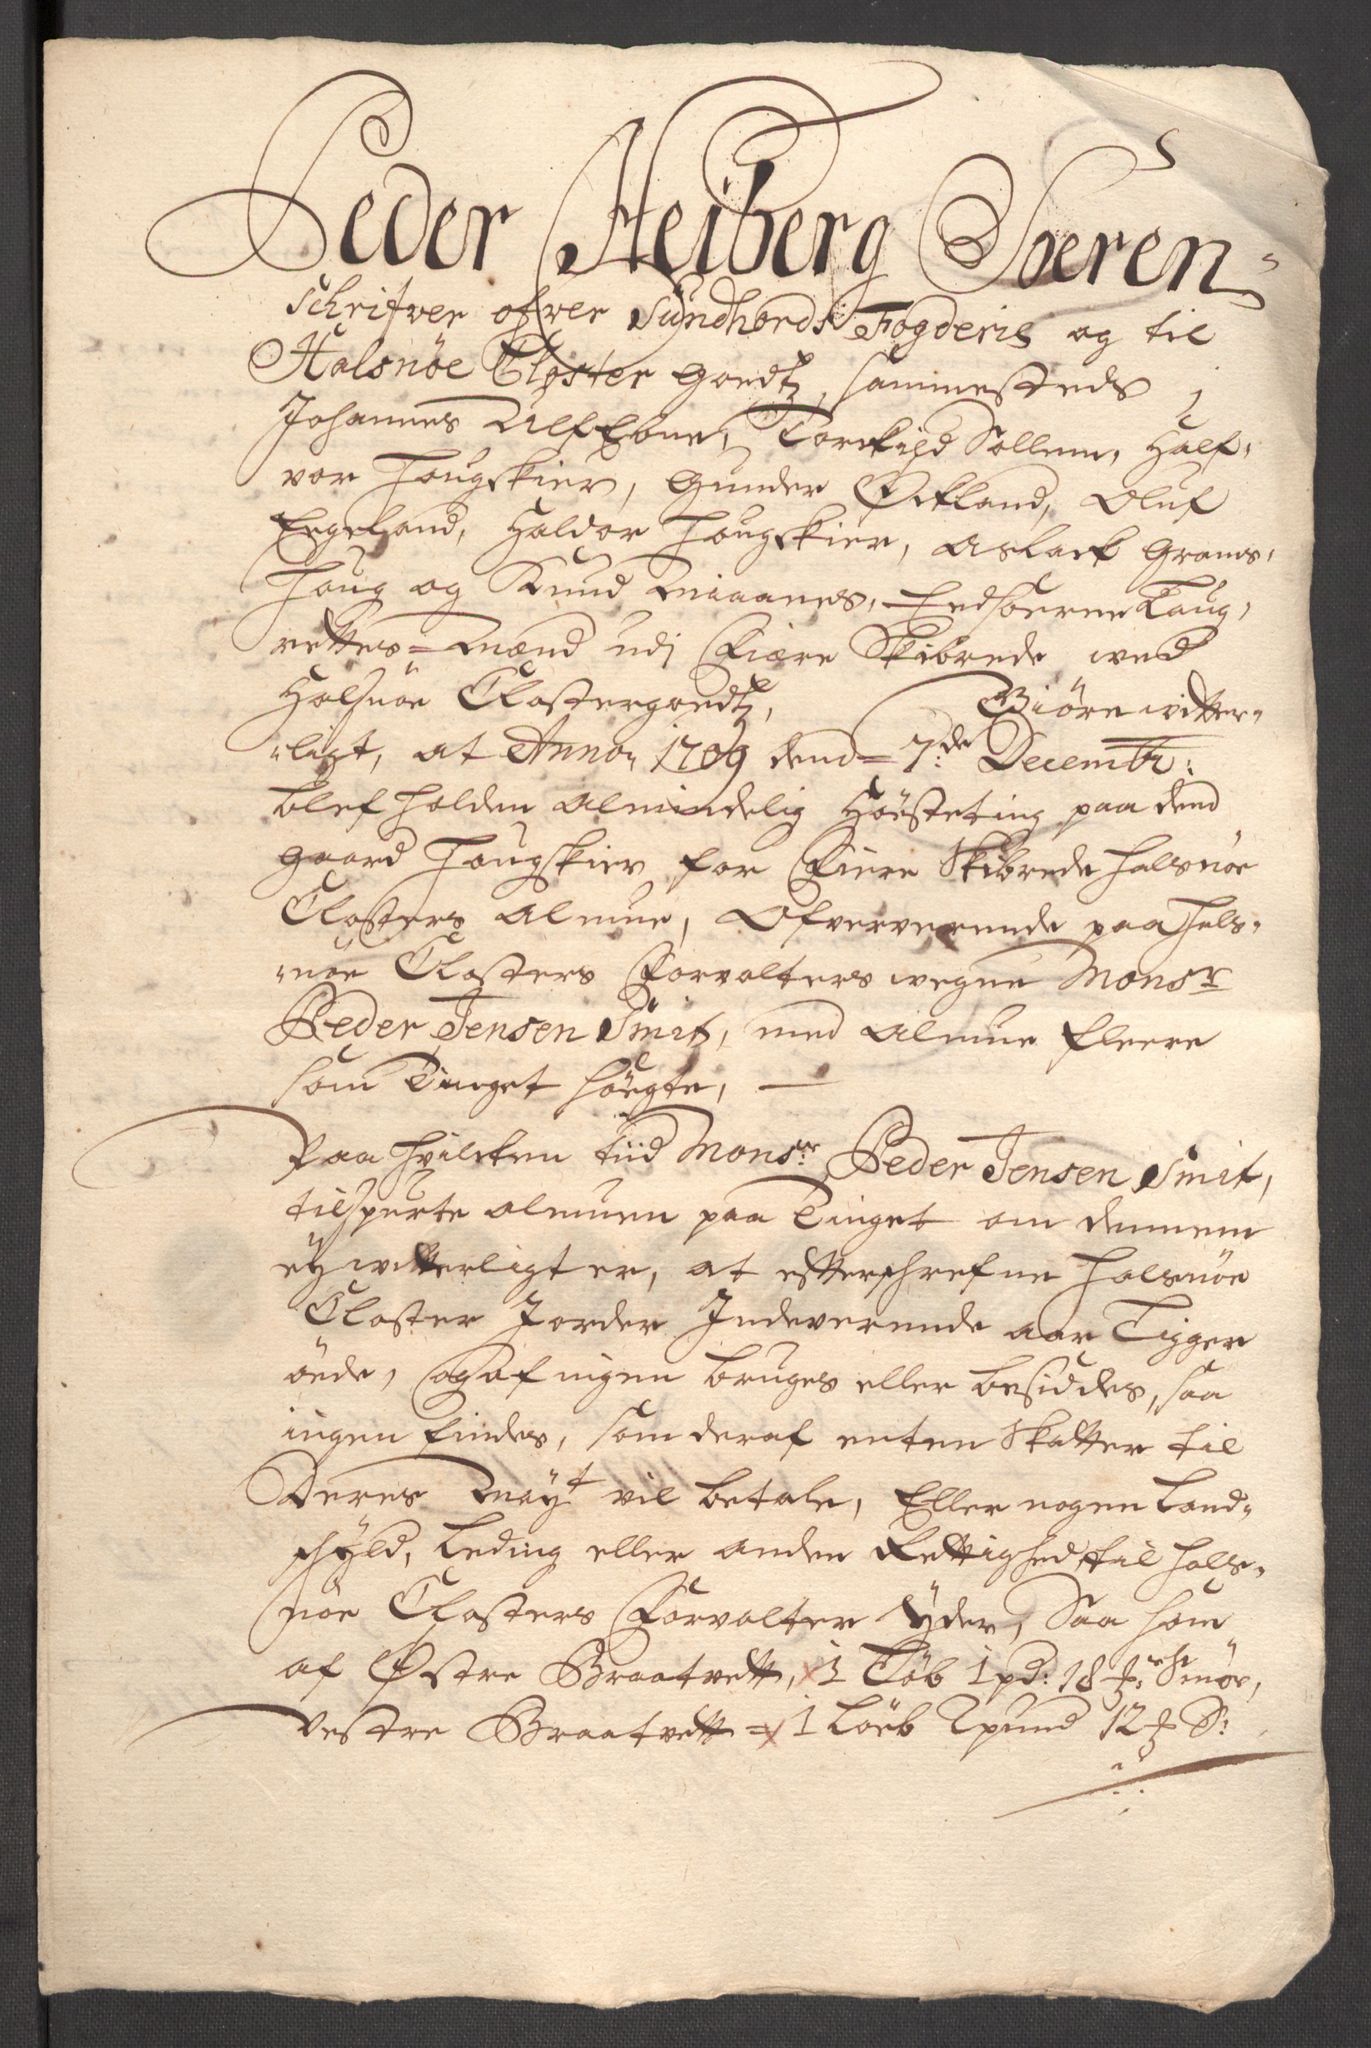 Peder Heiberg Soeren-
schrifver ofver Sundhords Fogderie og til
Halsnöe Closter goedtz, sammesteds
Johannes Alfsbne, Torckild Sollem, Half-
vor Hougskier, Gunder Öckland, Oluf
Eegeland, Haldor Hougskier, Aslack Grans-
houg og Knud Miaanes, Eedsoerne Laug-
rettes-Mænd udj Fiære Skibrede ved
Halsnöe Clostergoedtz, Giöre vitter-
-ligt, at Anno 1709 dend 7de Decembr:
blef holden almindelig Höösteting paa dend
gaard Hougskier for Fiere Skibrede halsnöe
Closters almue, Ofververende paa Hals-
-nöe Closters Forvalters vegne Monsr
Peder Jensen Smit, med almue fleere
som Tinget söegte, —
Paa hvilcken tiid Monsr: Peder Jensen Smit,
tilspurte almuen paa Tinget om dennem
ey vitterligt er, at efterschrefne halsnöe
Closter Jorder Indeverende aar Ligger
öede, og af ingen bruges eller besiddes, saa
ingen findes, som deraf enten Skatter til
Deres Mayt vil betale, Eller nogen Land-
schyld, Leding eller anden Rettighed til hals-
nöe Closters Forvalter Yder, Saa som
af Østre Braatvett, 1 Löb 1 pd: 18 ℔: Smör,
Vestre Braatvett = 1 Löeb 2 pund 12 ℔ S: